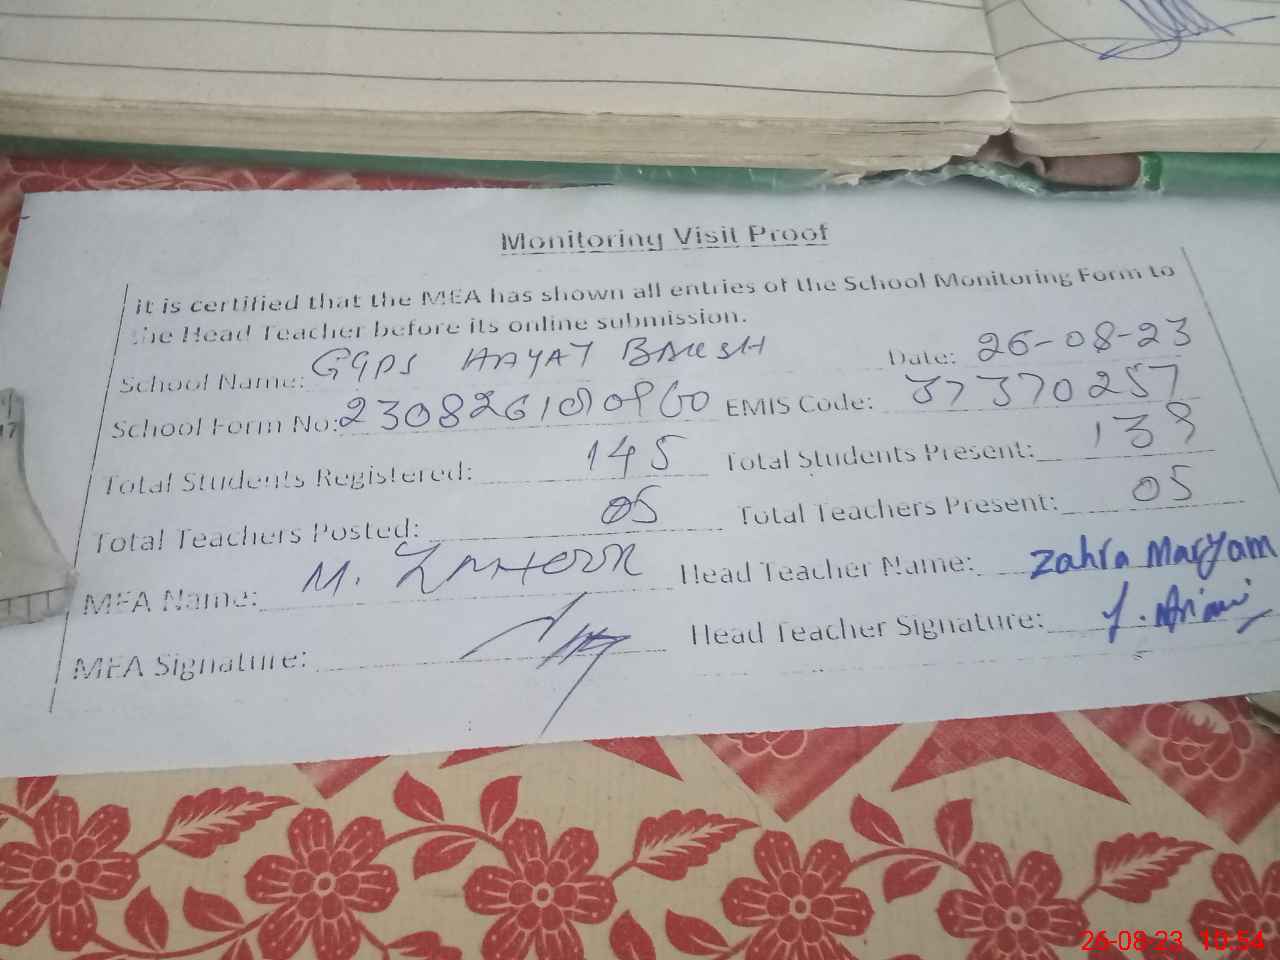 Monitoring Visit Proof
it is certified that the MEA has shown all entries of the School Monitoring Form to
the Head Teacher before its online submission.
School Name: GGPS HAYAT BAKSH Date: 26-08-23
School Form No: EMIS Code: 37370257
Total Students Registered: 145 Total Students Present:
Total Teachers Posted: 05 Total Teachers Present: 05
MEA Name: M. ZAHOOR Head Teacher Name: Zahra Maryam
MEA Signature: Head Teacher Signature:
26-08-23 10:54